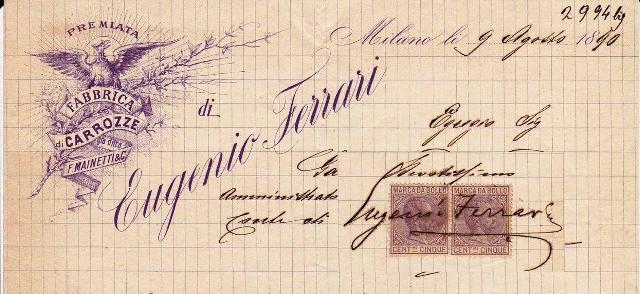 2994 big
PREMIATA
FABBRICA
di CARROZZE
già ditta
F. MAINETTI & C.
di
Eugenio Ferrari
Milano lì 9 Agosto 1890
Egregio Sig
Amministrat
Conte di
MARCA DA BOLLO MARCA DA BOLLO
Eugenio Ferrari
CENT.MI CINQUE CENT.MI CINQUE